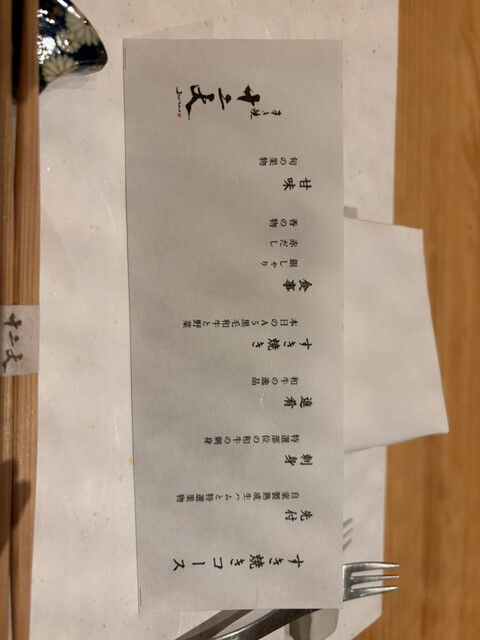 すき焼きコース
先付
自家製熟成生ハムと特選果物
刺身
特選部位の和牛の刺身
進肴
和牛の逸品
すき焼き
本日のA5黒毛和牛と野菜
食事
銀しゃり
赤だし
香の物
甘味
旬の果物
すき焼